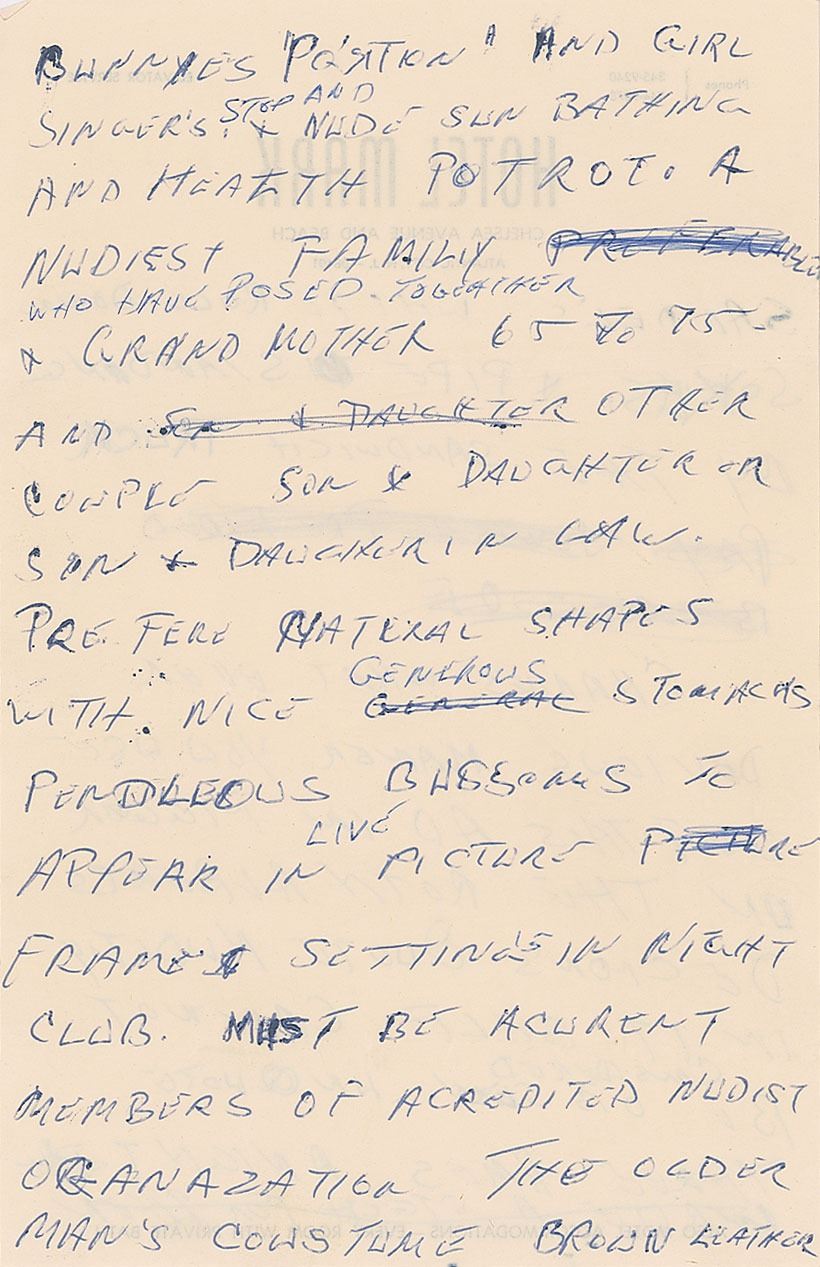 BUNNYES 'POSITION' AND GIRL
STOP AND
SINGERS. & NUDE SUN BATHING
AND HEALTH POTROT. A
NUDIEST FAMILY PREFERABLE
WHO HAVE POSED. TOGEATHER
& GRAND MOTHER 65 To 75-
AND SON & DAUGHTER OTHER
COUPLE SON & DAUGHTER OR
SON & DAUGHTER IN LAW.
PREFERE NATURAL SHAPES
GENEROUS
WITH. NICE GENERAL STOMACHS
PENDULEOUS BUSSOMS To
LIVE
APPEAR IN PICTURE PICTURE
FRAME SETTINGS IN NIGHT
CLUB. MUST BE ACURENT
MEMBERS OF ACREDITED NUDIST
ORGANAZATION THE OLDER
MAN'S COWSTUME BROWN LEATHER
HOTEL MARK
CHELSEA AVENUE AND BEACH